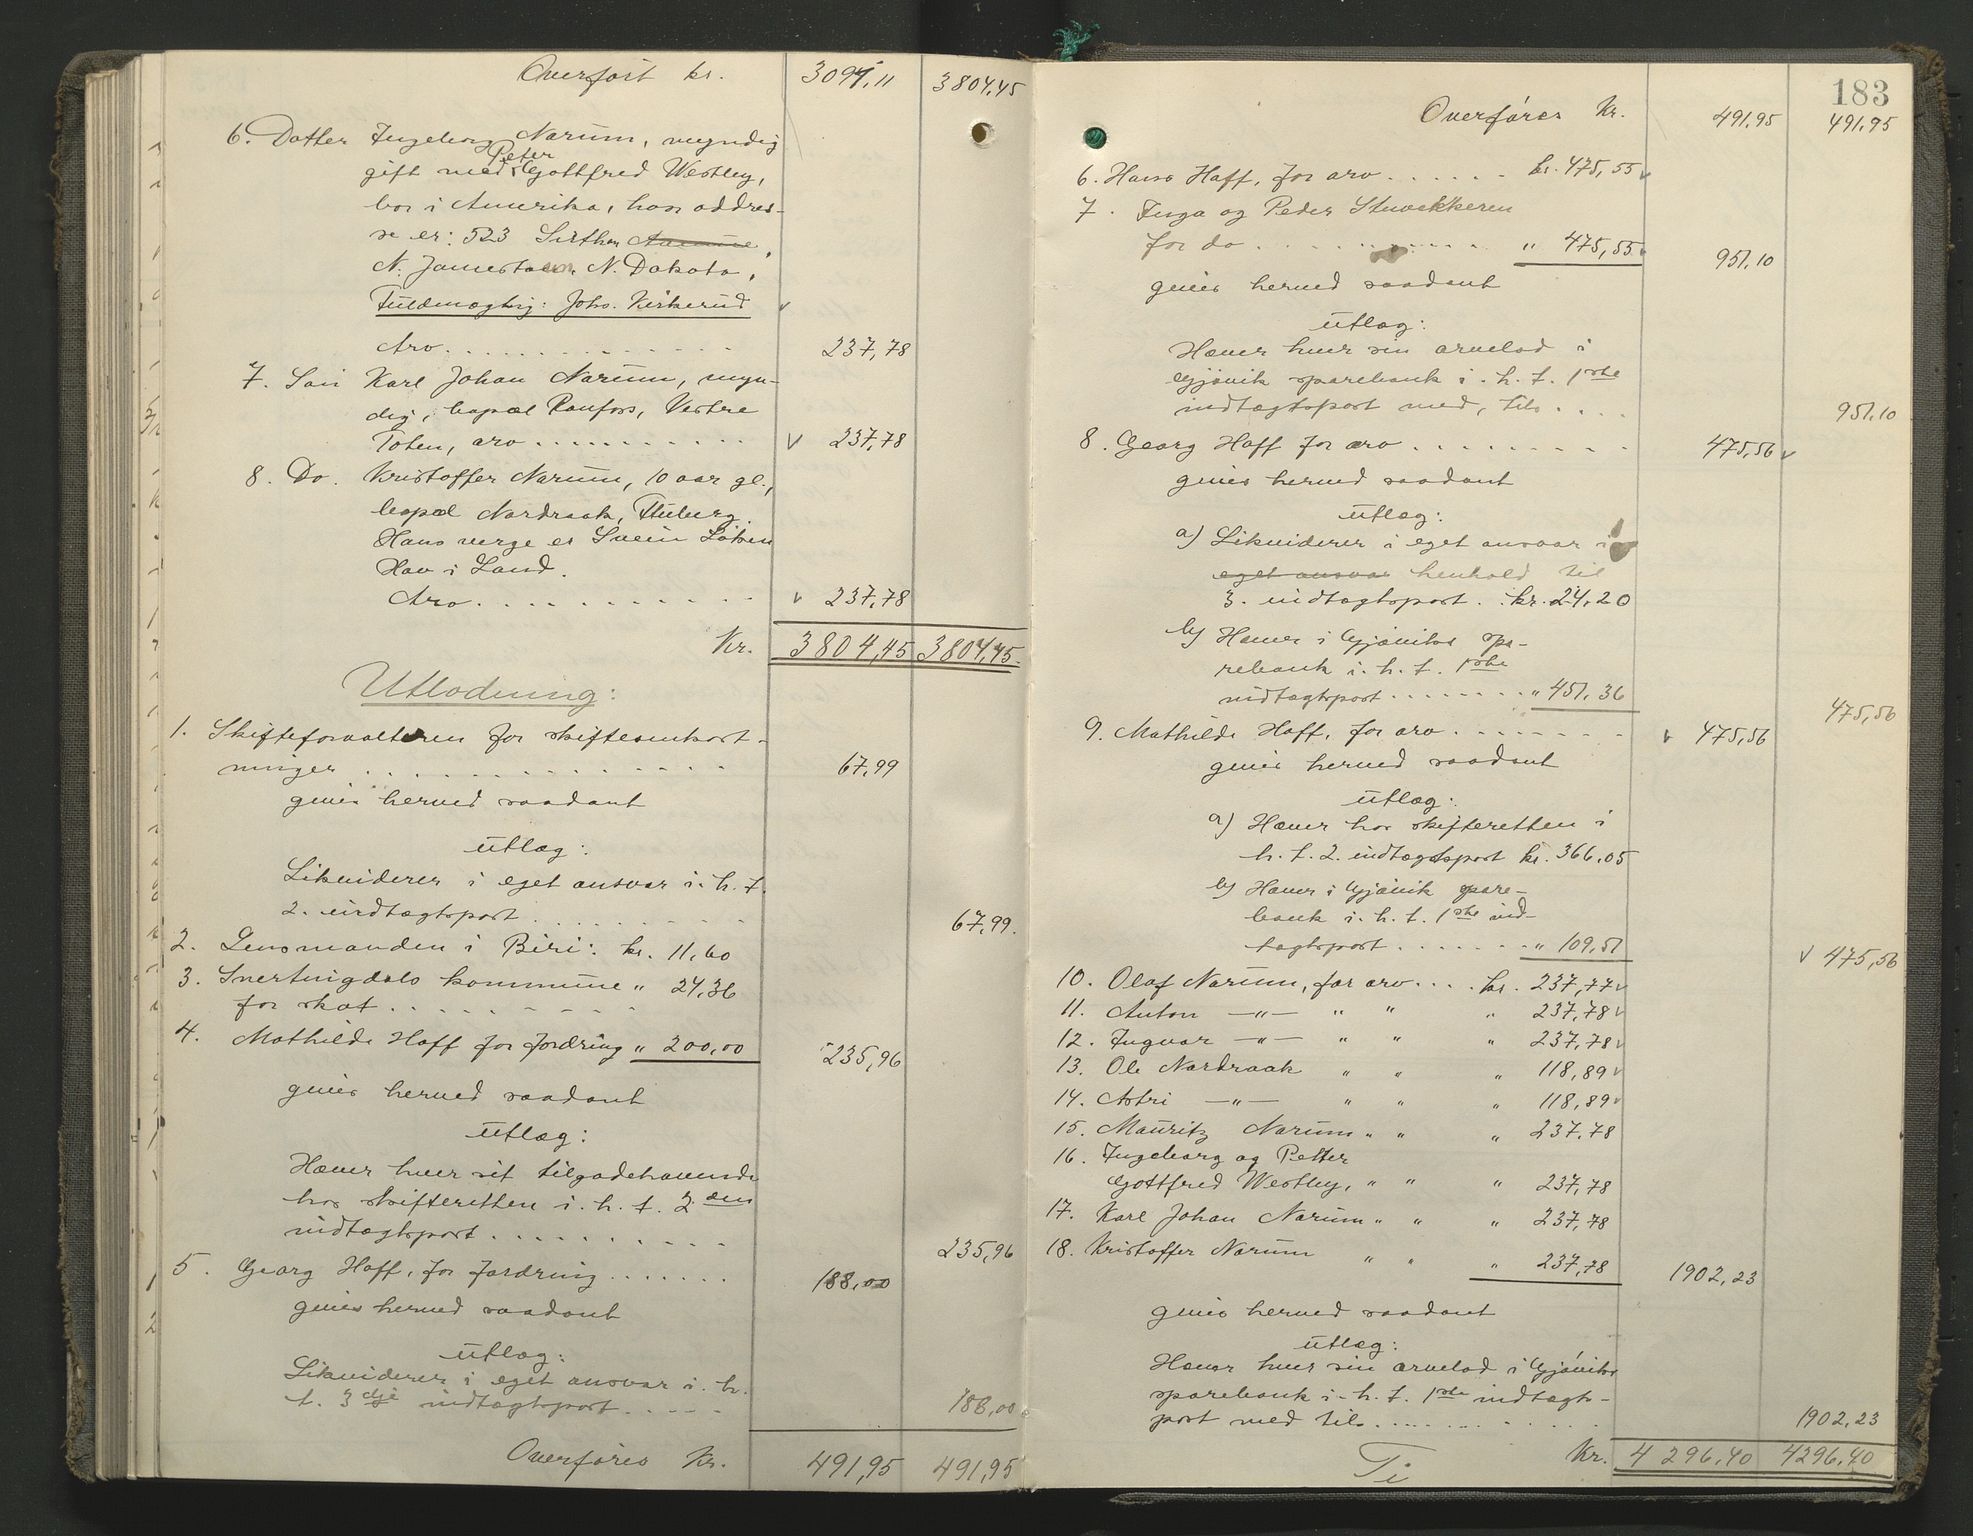 Overført kr. 3091,11 3804,45
6. Datter Ingeborg Narum, myndig
gift med Peter Gottfred Westley,
bor i Amerika, hos addres-
se er: 523
N. Jamestown N. Dakota,
Fuldmægtig: Johs. Kirkerud
Arv. . . . . . . . . . . . 237,78
7. Søn Karl Johan Narum, myn-
dig, bopæl Raufoss, Vestre
Toten, arv . . . . . . . . . . v 237,78
8. Do. Kristoffer Narum, 10 aar gl.,
bopæl Nordraak, Fluberg.
Hans verge er Svein
Hov i Land.
Arv. . . . . . . . . . . v 237,78
Kr. 3804,45 3804,45.
Utlodning:
1. Skifteforvalteren for skifteomkost-
ninger . . . . . . . . . . . . 67,99
gives herved saadant
utlæg:
Likviderer i eget ansvar i. h. t.
2. indtægtspost . . . . . . . 67,99.
2. Lensmanden i Biri: kr. 11,60
3. Snertingdals kommune " 24,36
for skat . . . . . . . .
4. Mathilde Haff for fordring " 200,00 235,96
gives herved saadant
utlæg:
Hæver hver sit tilgodehavende
hos skifteretten i. h. t. 2den
indtægtspost . . . . . . . . . . 235,96
5. Georg Haff, for fordring . . . . . . . 188,00
gives herved saadant
utlæg:
Likviderer i eget ansvar i. h.
t. 3dje indtægtspost . . . . . 188,00
Overføres Kr. 491,95 491,95
183
Overføres Kr. 491,95 491,95
6. Hans Haff, for arv . . . . . . kr. 475,55 v
7. Inga og Peder Stuvekkeren
for do . . . . . . . . . . . " 475,55 v 951,10
gives herved saadant
utlæg:
Hæver hver sin arvelod i
Gjøvik sparebank i. h. t. 1ste
indtægtspost med, tils. . . . 951,10
8. Georg Haff for arv . . . . . . . . 475,56 v
gives herved saadant
utlæg:
a) Likviderer i eget ansvar i
eget ansvar henhold til
3. indtægtspost . . kr. 24,20
b) Hæver i Gjøviks spa-
rebank i. h. t. 1ste
indtægtspost . . . . . . . . " 451,36
475,56
9. Mathilde Haff, for arv . . . . . . . v 475,56
gives herved saadant
utlæg:
a) Hæver hos skifteretten i
h. t. 2. indtægtspost kr. 366,05
b) Hæver i Gjøvik spare-
bank i. h. t. 1ste ind-
tægtspost . . . . . . . " 109,51 v 475,56
10. Olaf Narum, for arv . . . . kr. 237,77 v
11. Anton —"— " " " 237,78 v
12. Ingvar —"— " " " 237,78 v
13. Ole Nordraak " " " 118,89 v
14. Astri —"— " " " 118,89 v
15. Mauritz Narum " " " 237,78
16. Ingeborg og Petter
Gottfred Westley, " " " 237,78
17. Karl Johan Narum " " " 237,78
18. Kristoffer Narum " " " 237,78 1902,23
gives herved saadant
utlæg:
Hæver hver sin arvelod i Gjøviks
sparebank i. h. t. 1ste indtægts-
post med tils. . . . . . . . . . 1902,23
Kr. 4296,40 4296,40
Ti